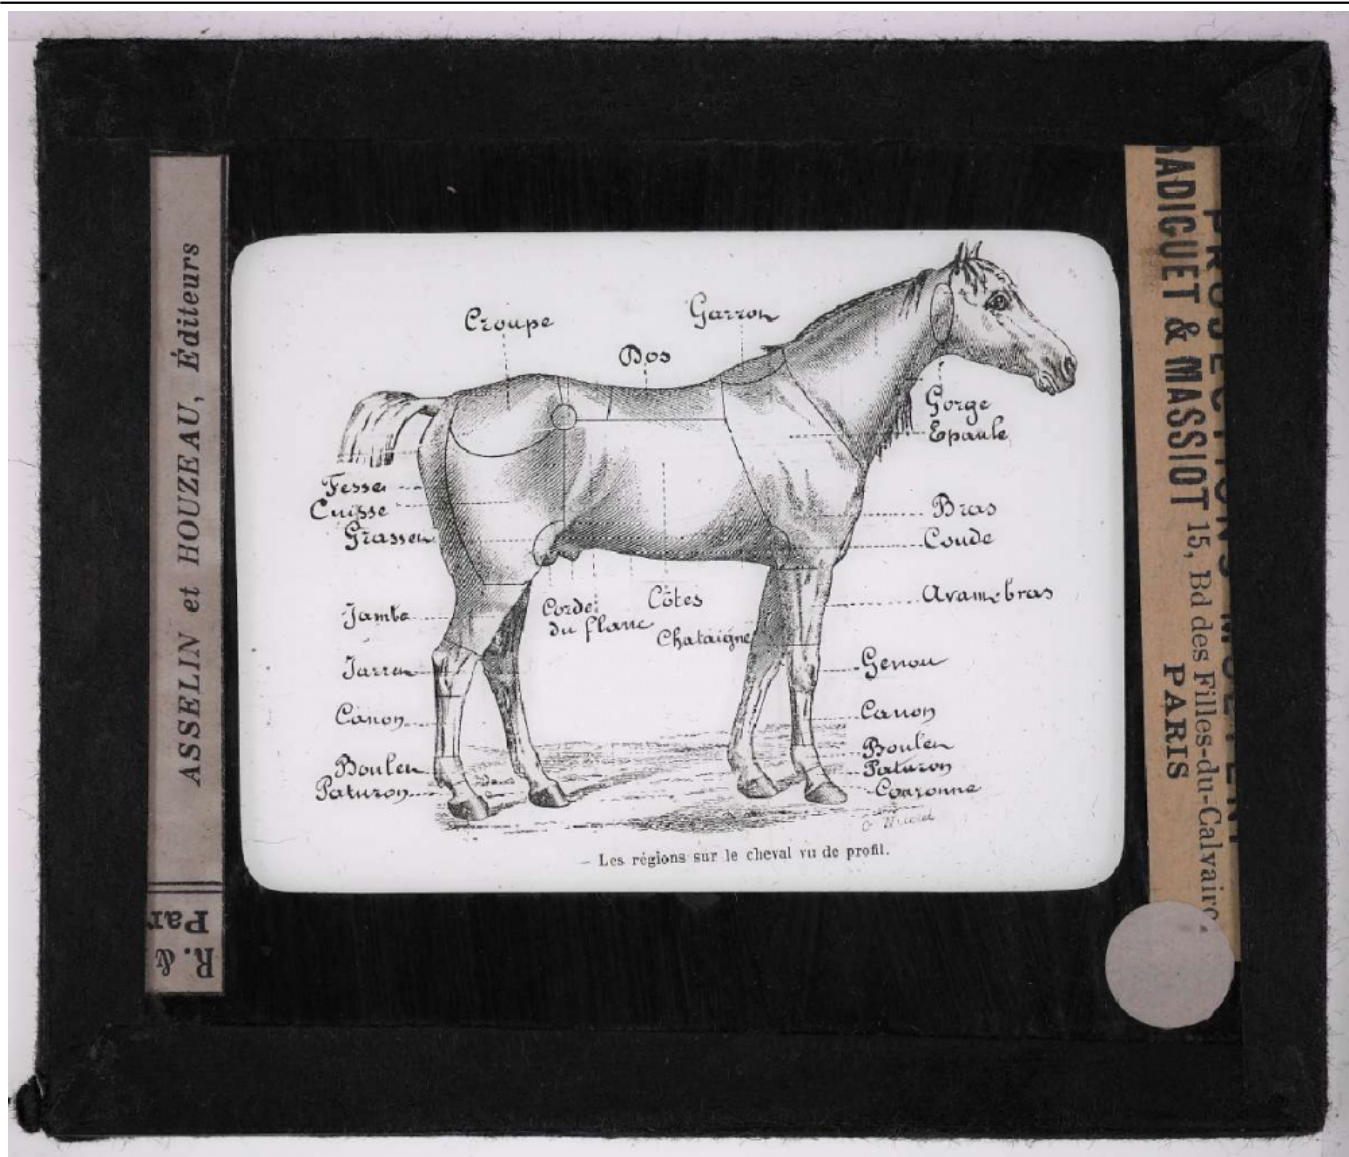 ASSELIN et HOUZEAU, Éditeurs
R. &
Par
Croupe
Garron
Dos
Gorge
Epaule
Fesse
Cuisse
Grassen
Bras
Coude
Jambe
Corde
du flanc
Côtes
Chataigne
Avantbras
Jarren
Genou
Canon
Canon
Boulen
Paturon
Boulen
Paturon
Couronne
– Les régions sur le cheval vu de profil.
PROJECTIONS MOLTENI
RADIGUET & MASSIOT
15, Bd des Filles-du-Calvaire.
PARIS